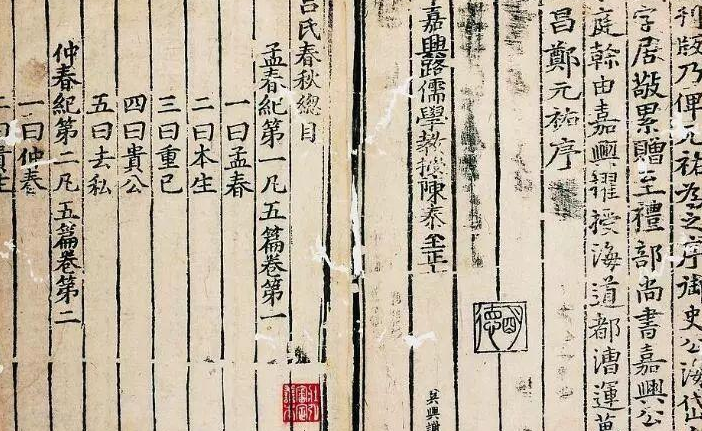 版乃俾元祐為之序御史公海岱
字居敬累贈至禮部尚書嘉興公
庭幹由嘉興擢授海道都漕運萬
昌鄭元祐序
嘉興路儒學教授陳泰至正
吳興謝
呂氏春秋總目
孟春紀第一凡五篇卷第一
一曰孟春
二曰本生
三曰重已
四曰貴公
五曰去私
仲春紀第二凡五篇卷第二
一曰仲春
二曰貴生